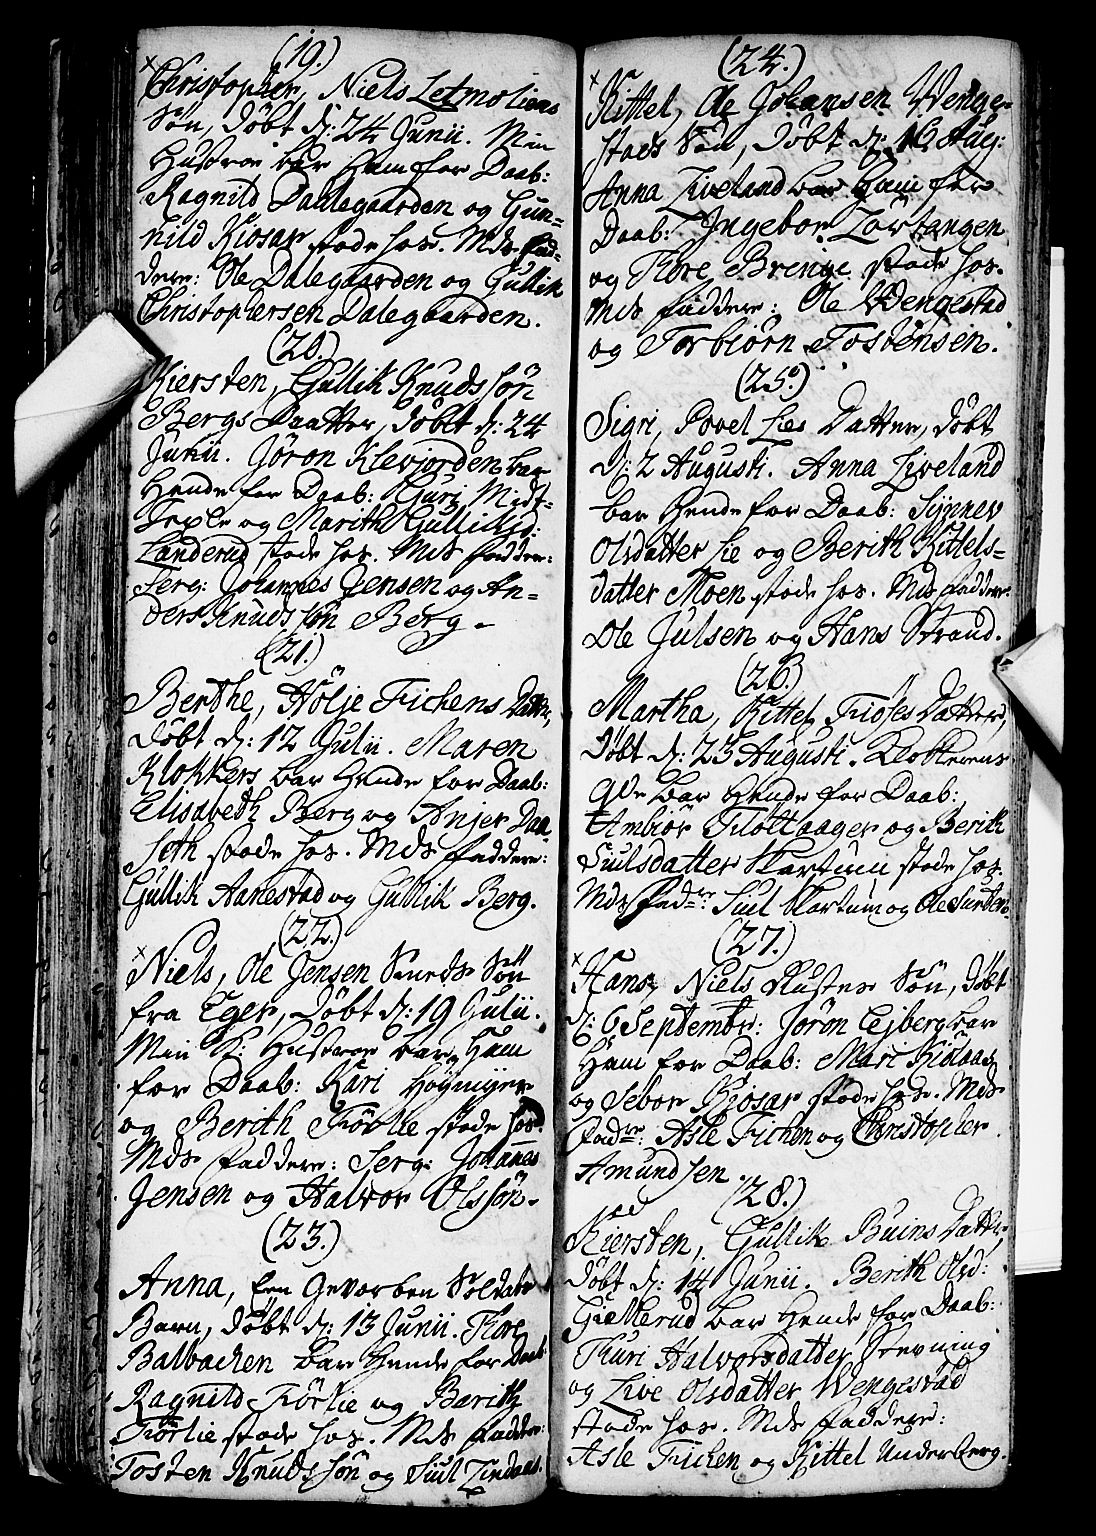 (19.)
Christopher, Niels Letmoliens
Søn, Døbt d: 24 Junii. Min
Hustroe bar Ham for Daab:
Ragnild Dalegaarden og Gun=
nild Kiosar stode hos. Mds Fad=
dere: Ole Dalegaarden og Gullik
Christophersen Dalegaarden.
(20.)
Kiersten, Gullik Knudssøn
Bergs Daatter, Døbt d: 24
Junii. Jøron Klevjorden bar
Hende for Daab: Guri Midt=
Teple og Marith Gulliksd:
Landerud stode hos. Mds Faddere:
Serg: Johannes Jensen og An=
ders Knudssøn Berg.
(21.)
Berthe, Hølje Fichens Datter,
Døbt d: 12 Julii. Maren
Klokkers bar Hende for Daab:
Elisabeth Berg og Anjer Daa
Seth stode hos. Mds Faddere:
Gullik Aanestad og Gullik Berg.
(22.)
Niels, Ole Jensen Smeds Søn
fra Eger, Døbt d: 19 Julii.
Min K: Hustroe bar Ham
for Daab: Kari Høymyer
og Berith Førlie stode hos.
Mds Faddere: Serg: Johannes
Jensen og Halvor Olssøn.
(23.)
Anna, Een Gevorben Soldats
Barn, Døbt d: 13 Junii. Thore
Balbachen bar Hende for Daab
Ragnild Førlie og Berith
Førlie stode hos. Mds Faddere:
Tosten Knudssøn og Siul Lindaas.
(24.)
Kittel, Ole Johansen Wenge=
stads Søn, Døbt d: 16 Aug:
Anna Liveland bar Ham for
Daab: Ingebor Lørtangen
og Thore Brenge stode hos.
Mds Faddere: Ole Wengestad
og Torbiørn Tostensen.
(25.)
Sigri, Povel Lies Datter, Døbt
d: 2 Augusti. Anna Liveland
bar Hende for Daab: Synnev
Olsdatter Lie og Berith Kittels=
datter Moen stode hos. Mds Faddere:
Ole Julsen og Hans Strand.
(26.)
Martha, Kittel Fløses Datter,
Døbt d: 23 Augusti. Klokkerens
Qde bar Hende for Daab:
Ambior Fløttaager og Berith
Siulsdatter Skartum stode hos.
Mds Fadre: Siul Skartum og Ole Sunden
(27.)
Hans, Niels Rustes Søn, Døbt
d: 6 Septembr: Jøron Ejberg bar
Ham for Daab: Mari Kidaas
og Sebor Kiosar stode hos. Mds
Fadre: Asle Fichen og Christopher
Amundsen.
(28.)
Kiersten, Gullik Buins Datter,
Døbt d: 14 Junii. Berith Olsd:
Giellerud bar Hende for Daab:
Thuri Halvorsdatter Stevning
og Live Olsdatter Wengestad
stode hos. Mds Faddere:
Asle Fichen og Kittel Underberg.